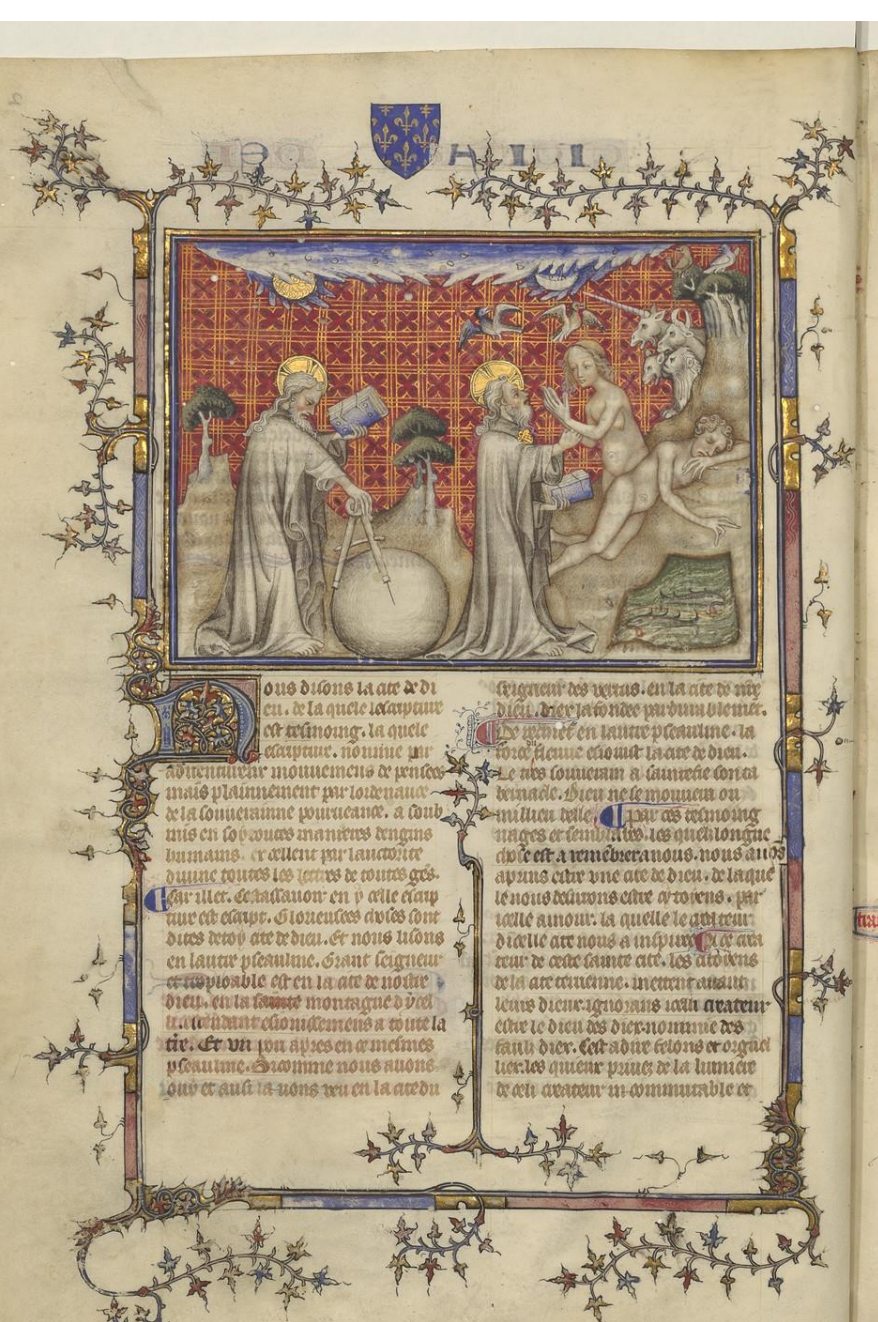 ous disons la cite de di
eu. de la quele lescripture
est tesmoing. la quele
escripture. nonmie par
mouuemens de pensees
mais plainnement par lordenance
de la souuerainne pourueance. a soub
mis en soy toutes manieres dengins
humains. excellent par lauctorite
diuine toutes les lettres de toutes gens.
Car illec. Cestassauoir en ycelle escrip
ture est escript. Glorieuses choses sont
dites de toy cite de dieu. Et nous lisons
en lautre pseaulme. Grant seigneur
et est en la cite de nostre
dieu. en la sainte montagne dycel
li. esioissemens a toute la
terre. Et un pou apres en ce mesmes
pseaulme. Sicomme nous auons
ouy et ausi la uons veu en la cite du
seigneur des vertus. en la cite de nostre
dieu. dier la fondee pardurablement.
De rechief en lautre pseaulme. la
force fleuue esiouist la cite de dieu.
Le tres souuerain a saintefie son ta
bernacle. Dieu ne se mouuera ou
millieu delle. par ces tesmoing
nages et semblables. les quelx longue
chose est a remembrer a nous. nous auons
apris estre vne cite de dieu. de la que
le nous desirons estre cytoyens. par
icelle amour. la quelle le createur
dicelle cite nous a inspire. A ce crea
teur de ceste sainte cite. les citoyens
de la cite terrienne. mettent auant
leurs dieux. ignorans icelli createur
estre le dieu des diex. nommie des
faulx diex. Cest a dire felons et orguel
leux. les quieux priuez de la lumiere
de celi createur in commutable et